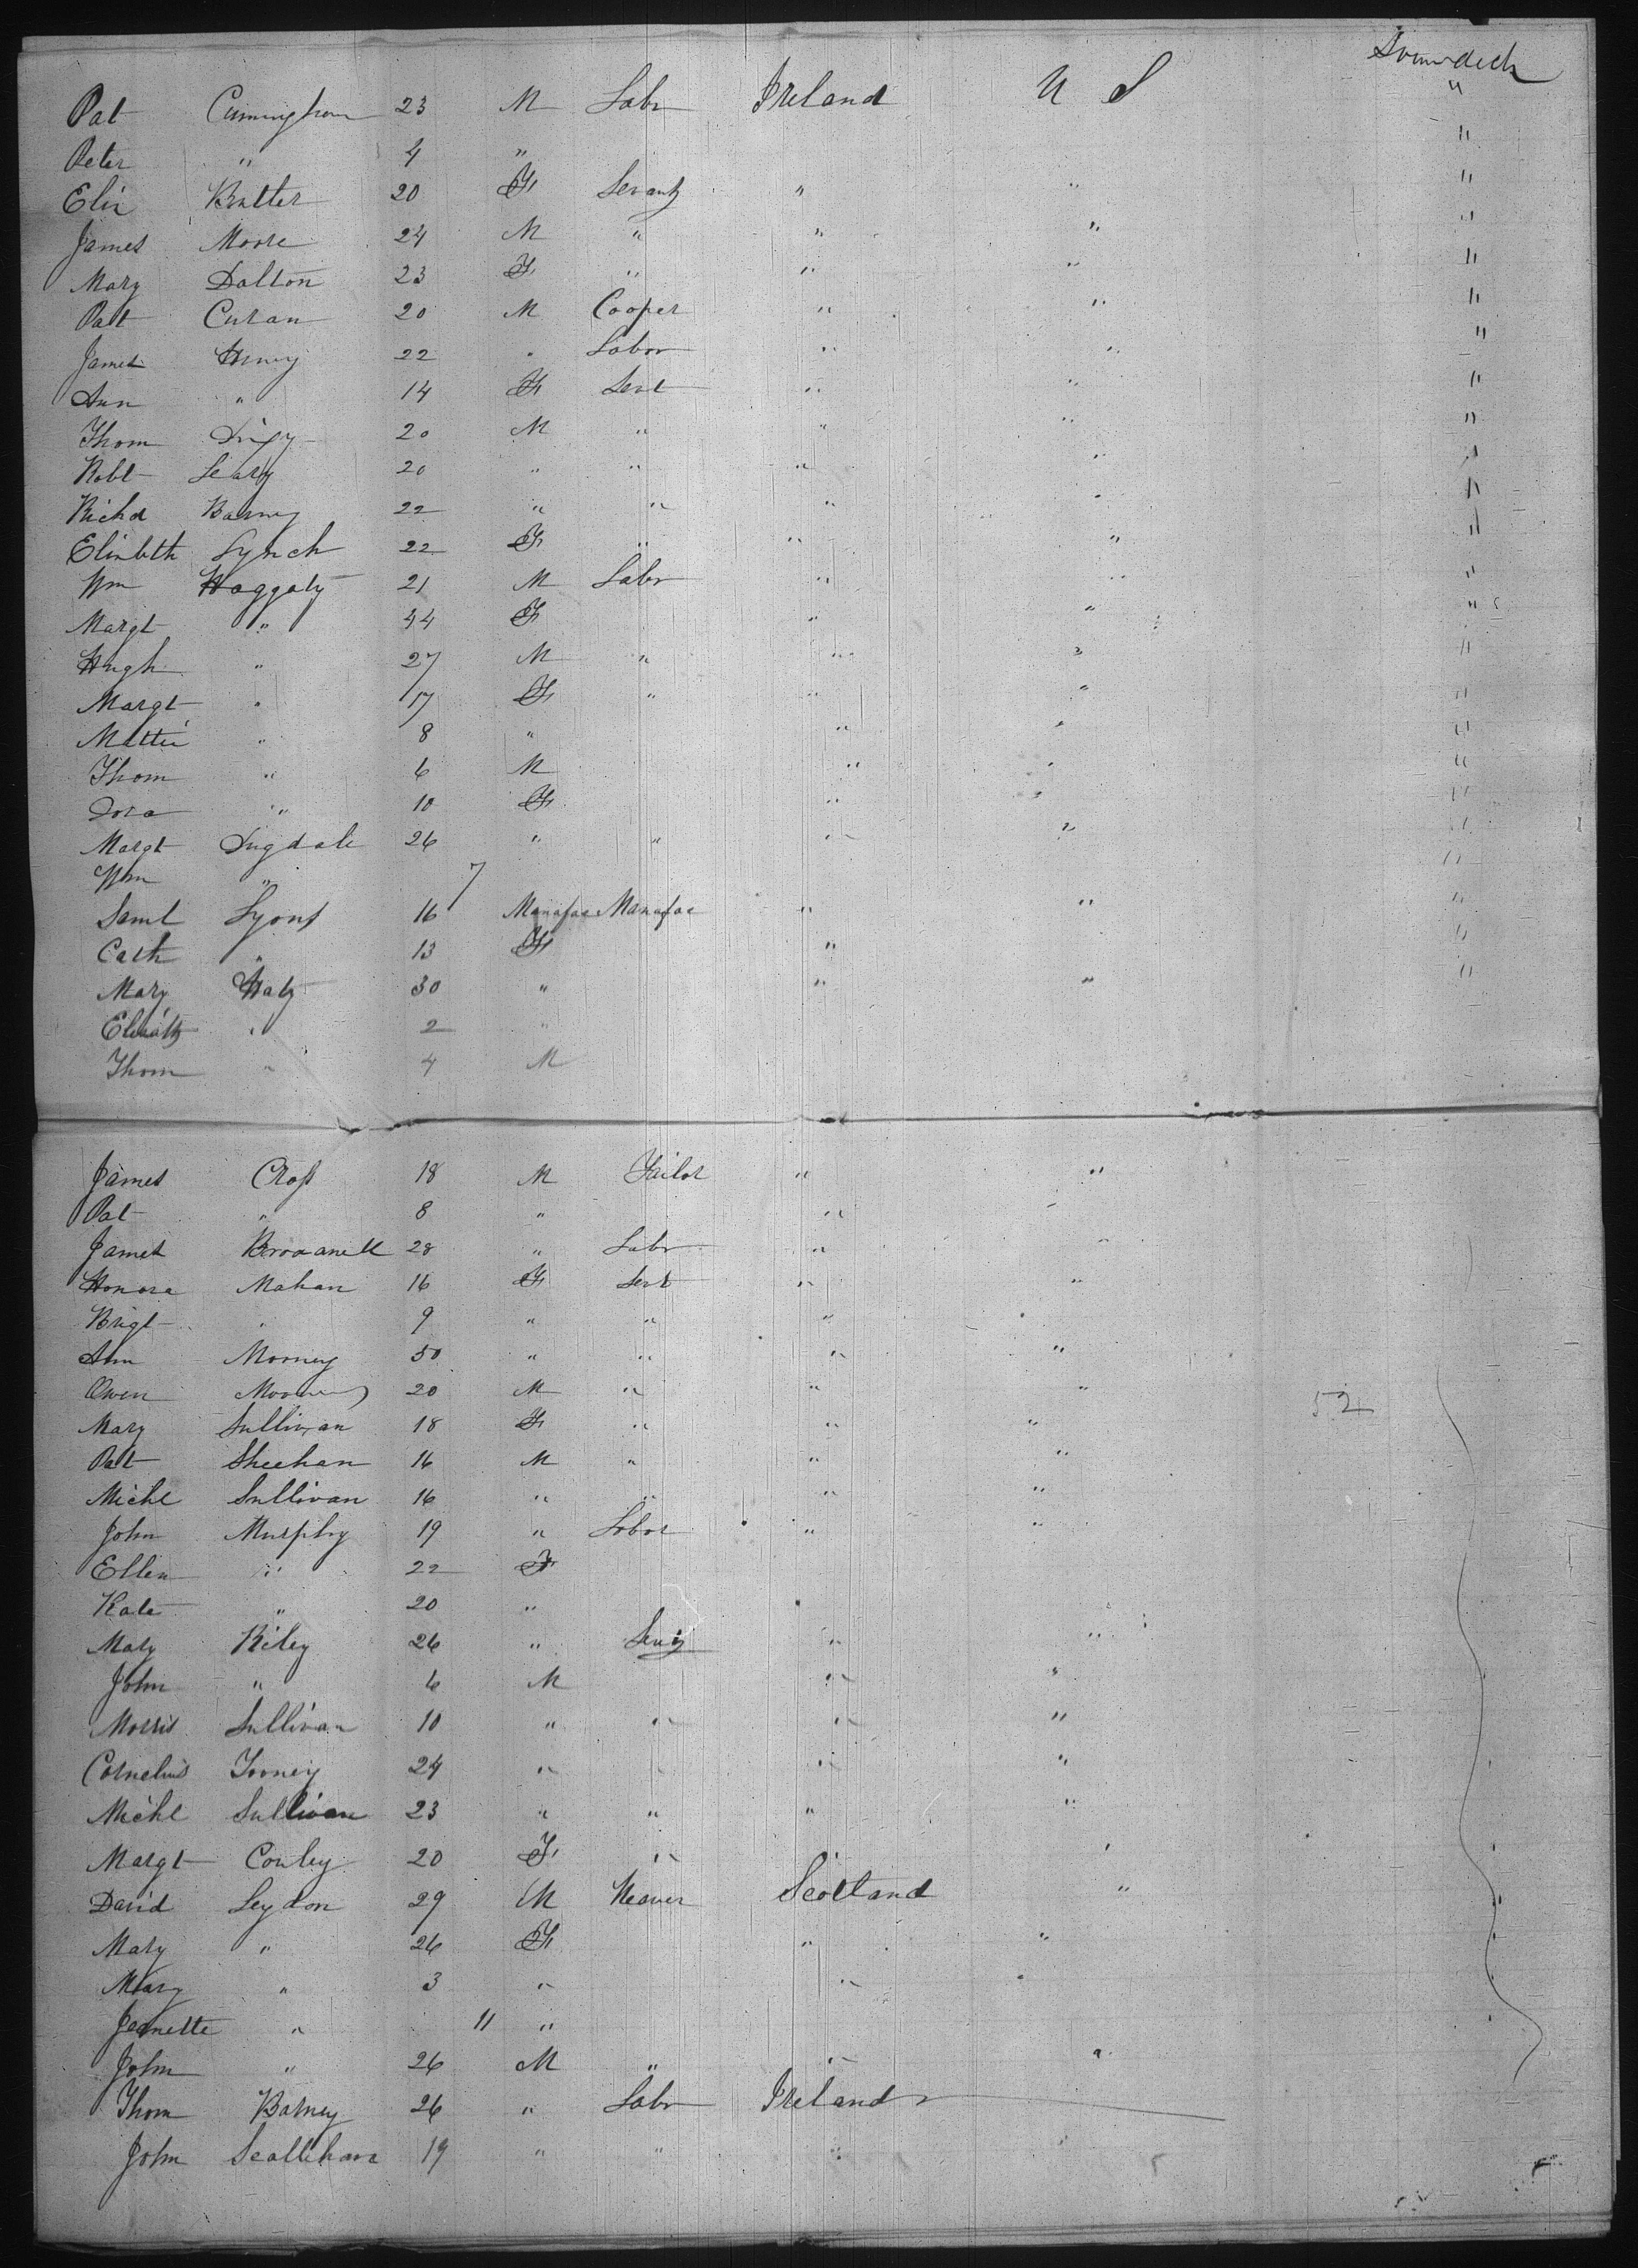 Pat 23 M Labr Ireland U S "
Peter " 4 " "
Eliz Butler 20 F Servant " " "
James Moore 24 M " " " "
Mary Dalton 23 F " " " "
Pat Curan 20 M Cooper " " "
James Henry 22 " Labor " " "
Ann " 14 F Servt " " "
Thom 20 M " " " "
Robt Leary 20 " " " " "
Richd Barney 22 " " " " "
Elizbeth Lynch 22 F " " " "
Wm Haggaty 21 M Labr " " "
Margt " 44 F " " "
Hugh " 27 M " " " "
Margt " 17 F " " " "
Mattie " 8 " " " "
Thom " 6 M " " "
Dora " 10 F " " "
Margt Dugdale 26 " " " " "
Wm " 7 "
Saml Lyons 16 Manafac Manafac " " "
Cath " 13 F " "
Mary 30 " " " "
" 2 "
Thom " 4 M
James Cross 18 M Tailor " "
Pat " 8 " " "
James 28 " Labr " "
Honora Mahan 16 F Servt " "
Brigt " 9 " " "
Ann Mooney 50 " " " "
Owen 20 M " " " 52
Mary Sullivan 18 F " " "
Pat Sheehan 16 M " " "
Michl Sullivan 16 " " " "
John Murphy 19 " Labor " "
Ellen " 22 F
Kate " 20 "
Mary Riley 26 " " "
John " 6 M " "
Morris Sullivan 10 " " " "
Cornelius Tooney 24 " " " "
Michl Sullivan 23 " " " "
Margt Conley 20 F " "
David Leydon 29 M Weaver Scotland "
Mary " 26 F " "
Mary " 3 " "
Jeanette " 11 "
John " 26 M " " "
Thom Barney 26 " Labr Ireland
John 19 " " "